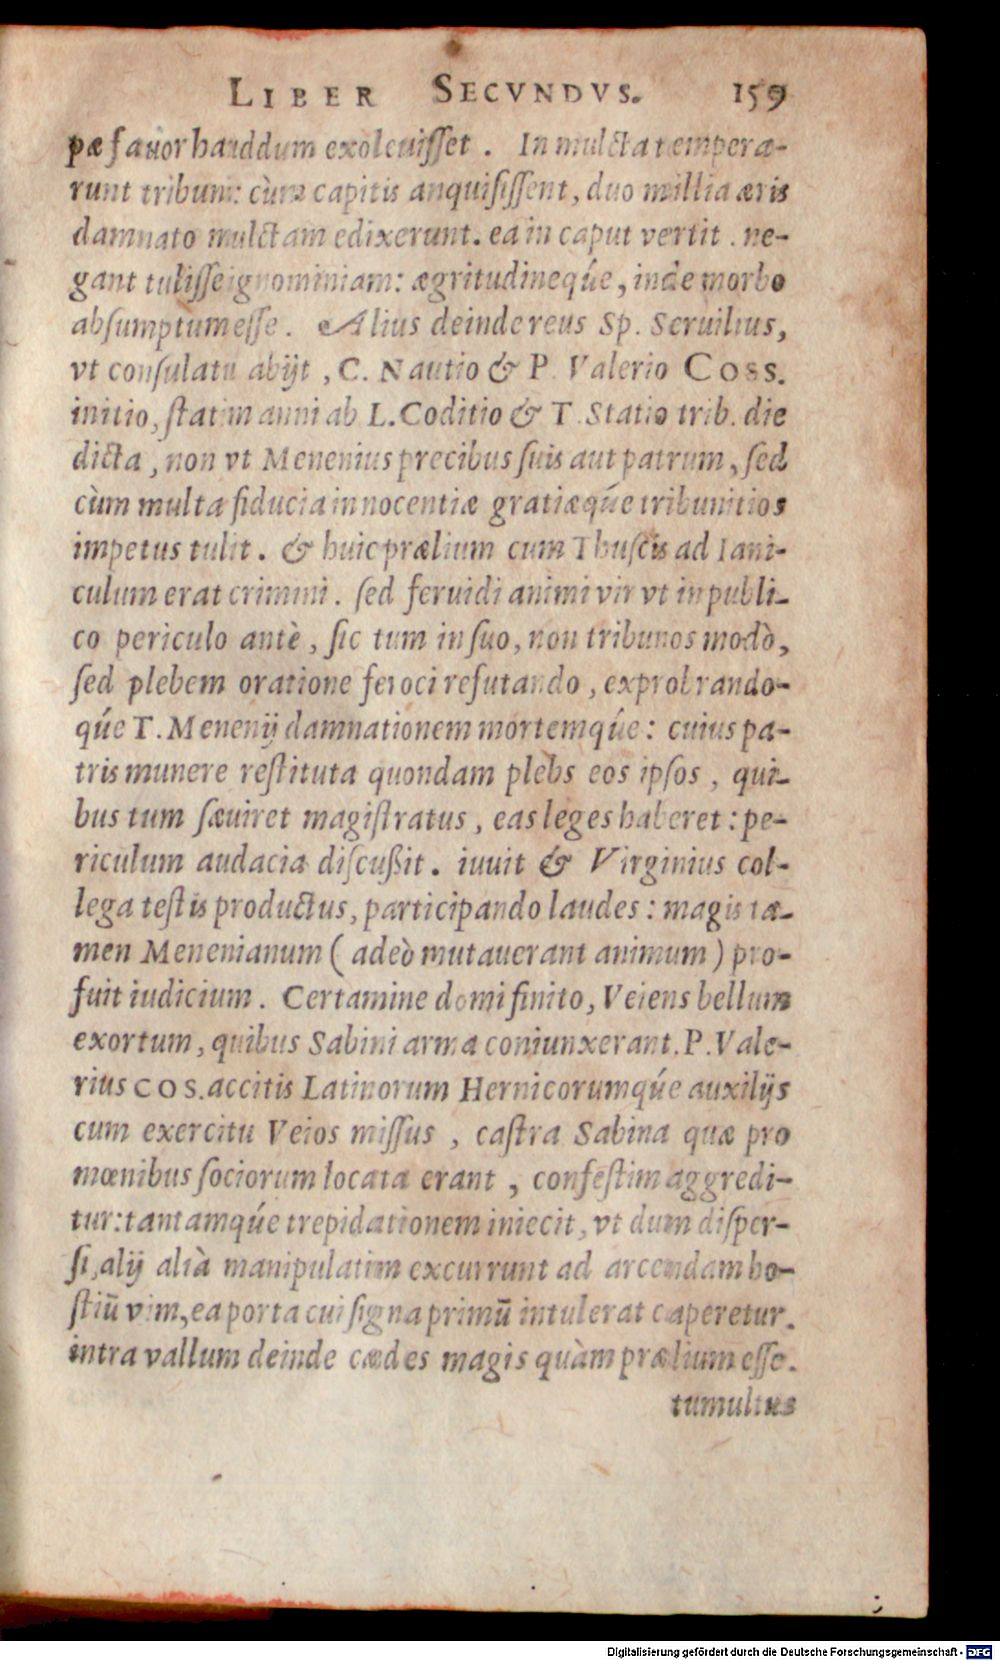 LIBER SECVNDVS. 159
pæ fauor hauddum exoleuisset. In mulcta tempera-
runt tribuni: cùm capitis anquisissent, duo millia æris
damnato mulctam edixerunt. ea in caput vertit. ne-
gant tulisse ignominiam: ægritudineqúe, inde morbo
absumptum esse. Alius deinde reus Sp. Seruilius,
vt consulatu abijt, C. Nautio & P. Valerio Coss.
initio, statim anni ab L. Coditio & T. Statio trib. die
dicta, non vt Menenius precibus suis aut patrum, sed
cùm multa fiducia innocentiæ gratiæqúe tribunitios
impetus tulit. & huic prælium cum Thuscis ad Iani-
culum erat crimini. sed feruidi animi vir vt in publi-
co periculo antè, sic tum in suo, non tribunos modò,
sed plebem oratione feroci refutando, exprobrando-
qúe T. Menenij damnationem mortemqúe: cuius pa-
tris munere restituta quondam plebs eos ipsos, qui-
bus tum sæuiret magistratus, eas leges haberet: pe-
riculum audacia discußit. iuuit & Virginius col-
lega testis productus, participando laudes: magis ta-
men Menenianum (adeò mutauerant animum) pro-
fuit iudicium. Certamine domi finito, Veiens bellum
exortum, quibus Sabini arma coniunxerant. P. Vale-
rius COS. accitis Latinorum Hernicorumqúe auxilijs
cum exercitu Veios missus, castra Sabina quæ pro
mœnibus sociorum locata erant, confestim aggredi-
tur: tantamqúe trepidationem iniecit, vt dum disper-
si, alij alià manipulatim excurrunt ad arcendam ho-
stiū vim, ea porta cui signa primū intulerat caperetur.
intra vallum deinde cædes magis quàm prælium esse.
tumultus
Digitalisierung gefördert durch die Deutsche Forschungsgemeinschaft - DFG